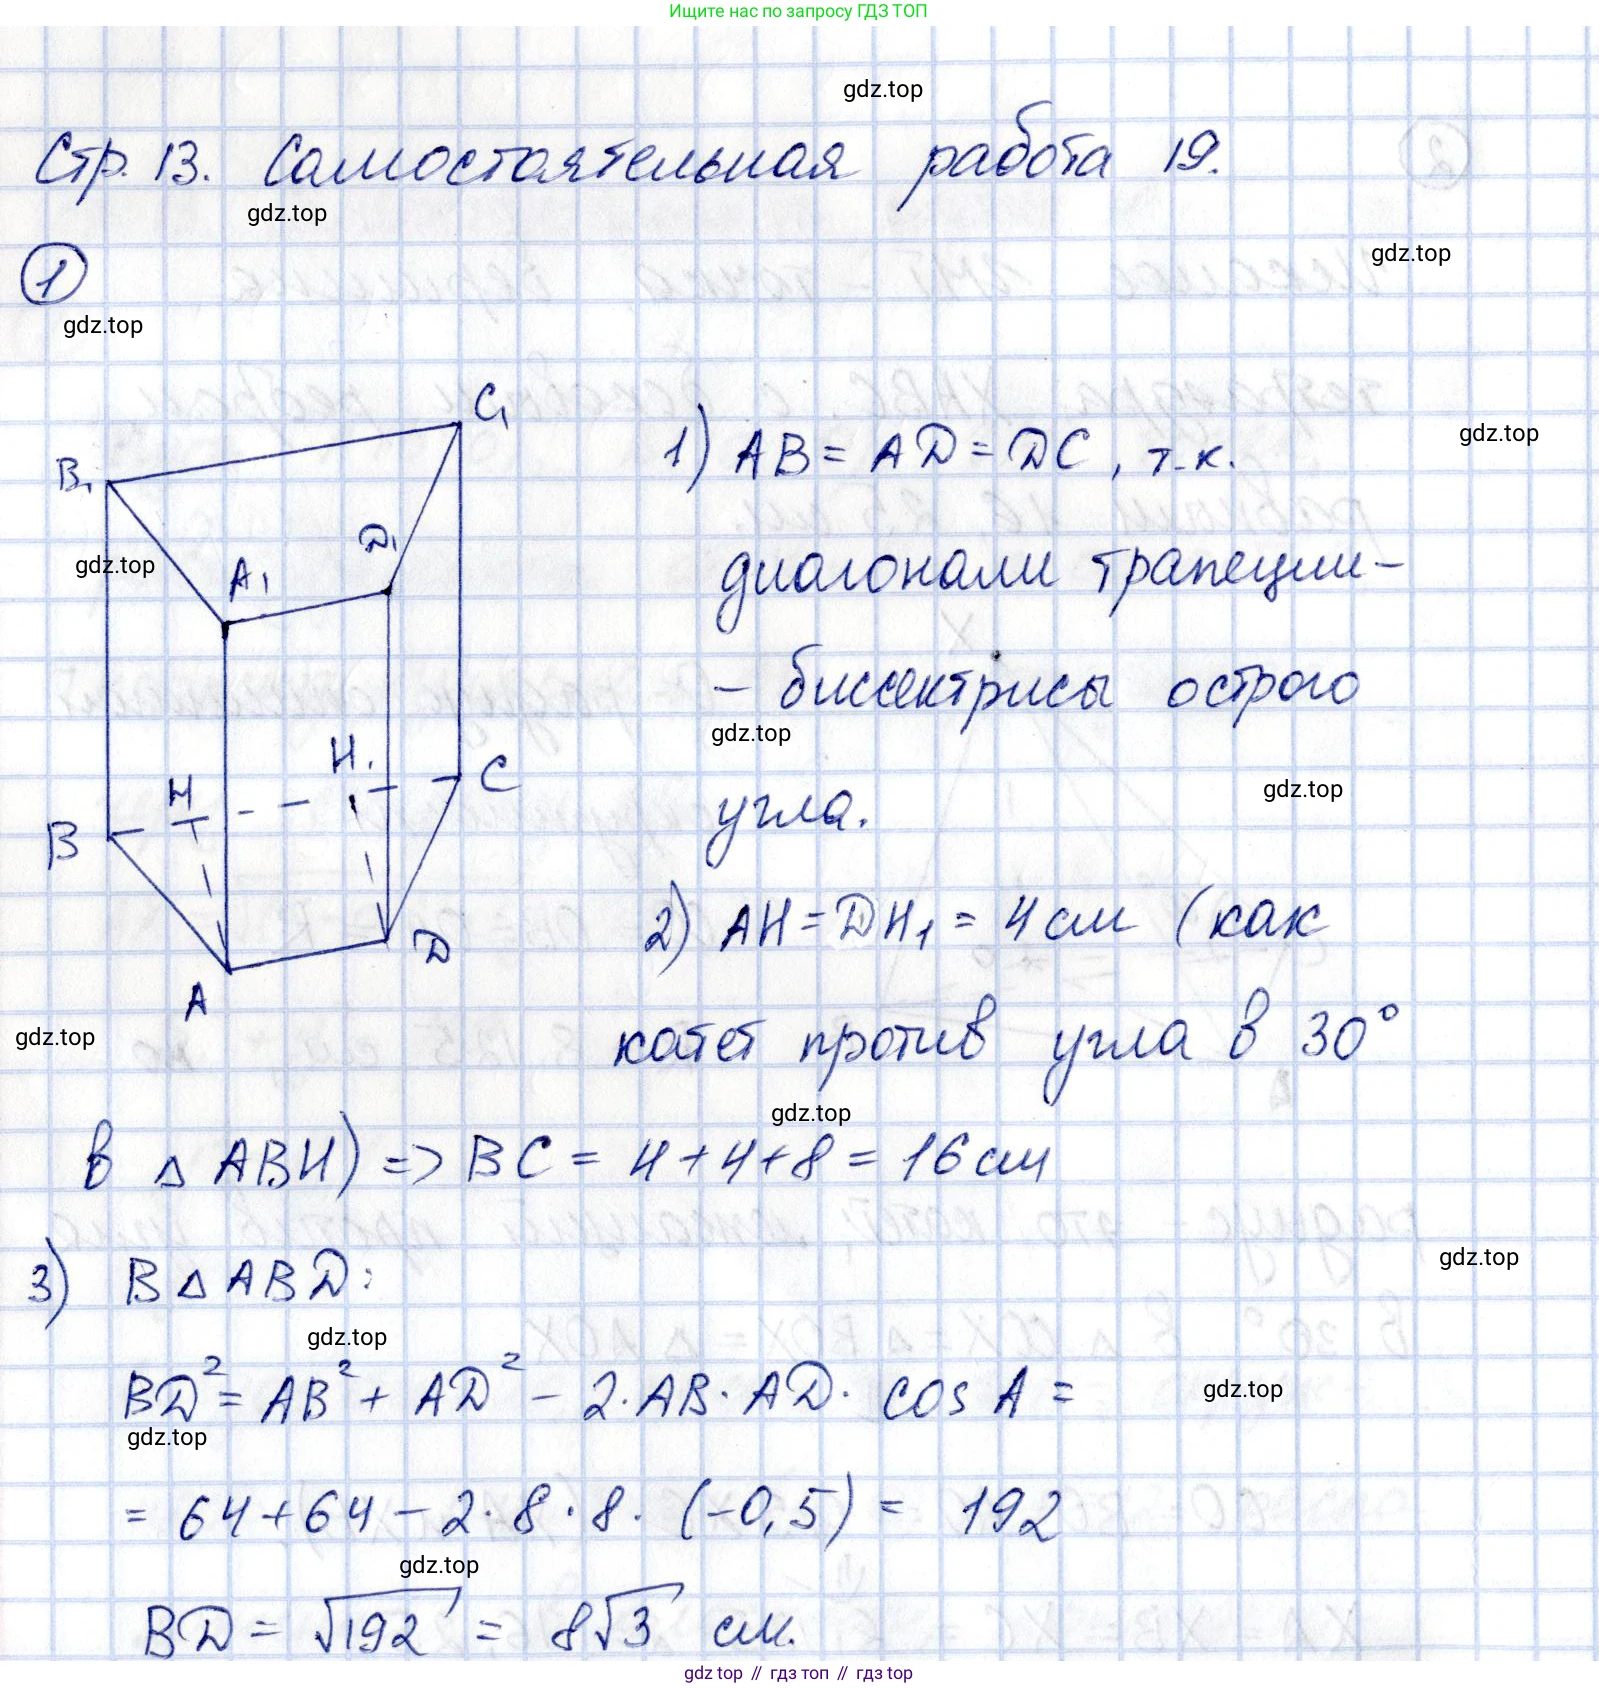 Ищите нас по запросу ГДЗ ТОП
gdz.top
Стр. 13. Самостоятельная работа 19.
gdz.top
gdz.top
1
gdz.top
C₁
B₁
gdz.top
1) AB = AD = DC, т.к.
D₁
A₁
gdz.top
диагонали трапеции –
– биссектрисы острого
gdz.top
H₁
H
C
gdz.top
B
угла.
2) AH = DH₁ = 4 см (как
D
A
gdz.top
катет против угла в 30°
gdz.top
в △ ABH) => BC = 4 + 4 + 8 = 16 см
gdz.top
3) В △ ABD:
gdz.top
BD² = AB² + AD² – 2 · AB · AD · cos A =
gdz.top
gdz.top
= 64 + 64 – 2 · 8 · 8 · (-0,5) = 192
gdz.top
BD = √192 = 8√3 см.
gdz top // гдз топ // гдз top